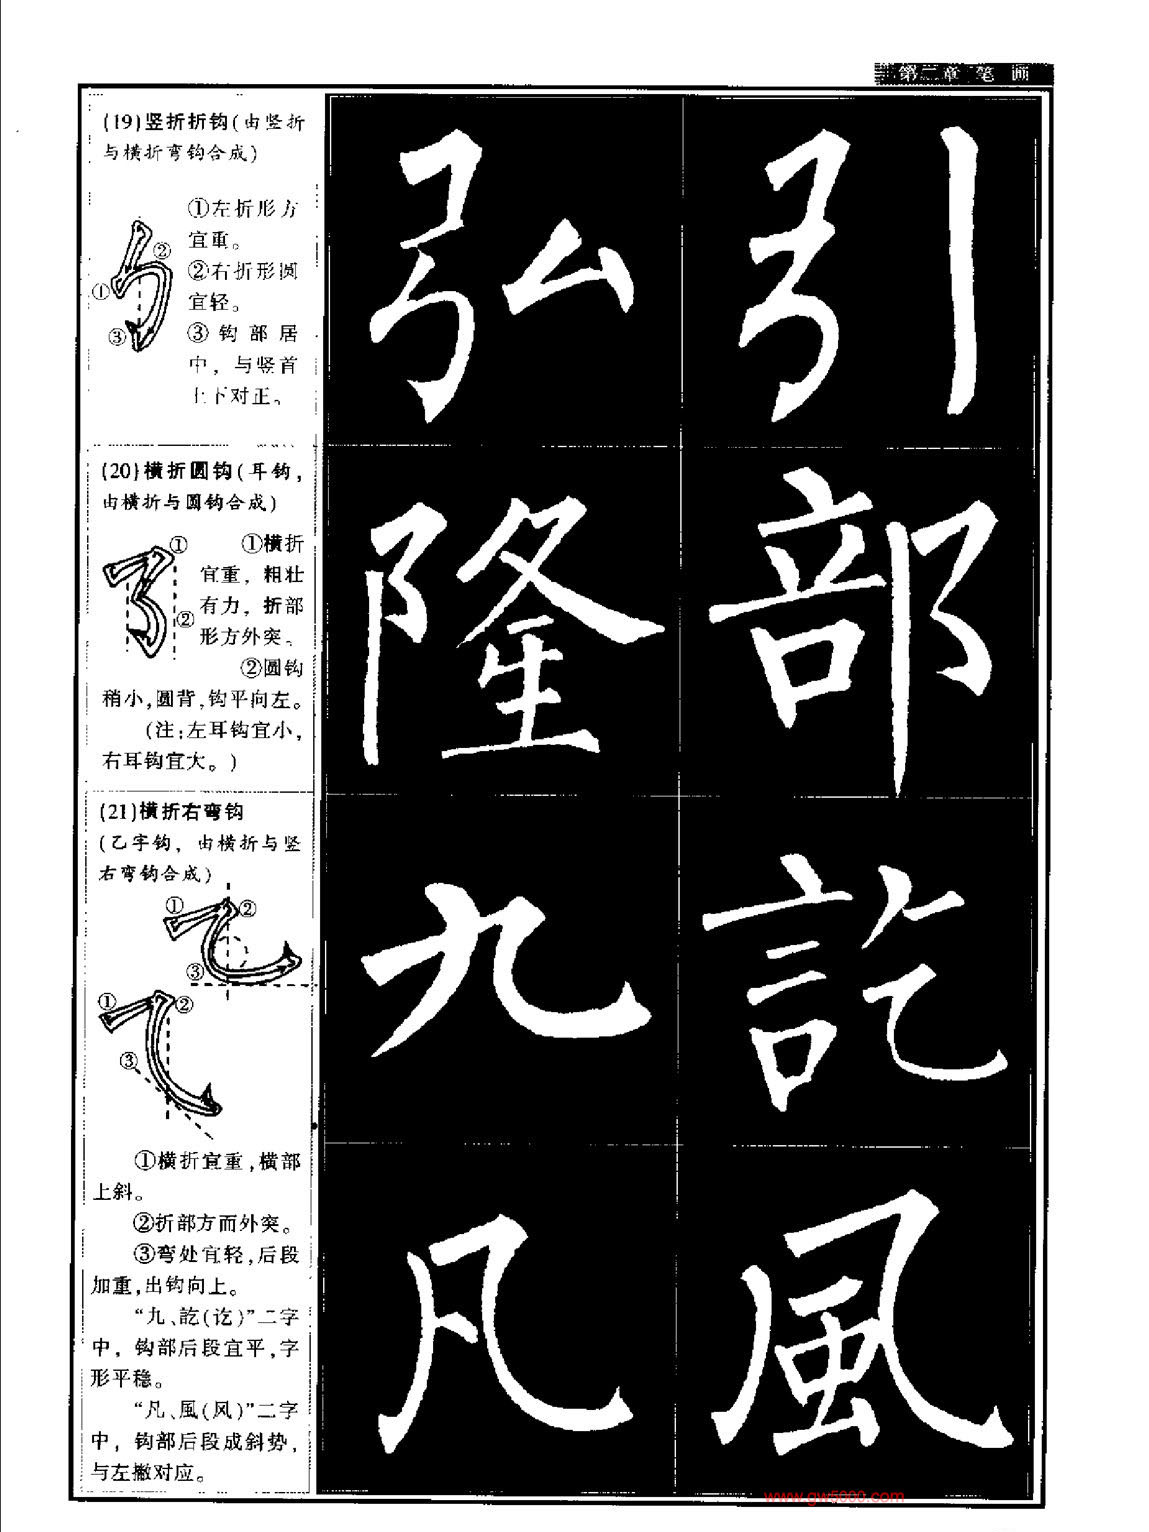 第二章 笔画
(19)竖折折钩(由竖折
与横折弯钩合成)
①左折形方
宜重。
②右折形圆
宜轻。
③钩部居
中，与竖首
上下对正。
②
①
③
(20)横折圆钩(耳钩，
由横折与圆钩合成)
①横折
宜重，粗壮
有力，折部
形方外突。
②圆钩
稍小,圆背,钩平向左。
(注:左耳钩宜小，
右耳钩宜大。)
①
②
(21)横折右弯钩
(乙字钩，由横折与竖
右弯钩合成)
①
②
③
①
②
③
①横折宜重,横部
上斜。
②折部方而外突。
③弯处宜轻,后段
加重,出钩向上。
“九、訖(讫)”二字
中，钩部后段宜平,字
形平稳。
“凡、風(风)”二字
中，钩部后段成斜势，
与左撇对应。
弘 引
隆 部
九 訖
凡 風
www.gw5000.com